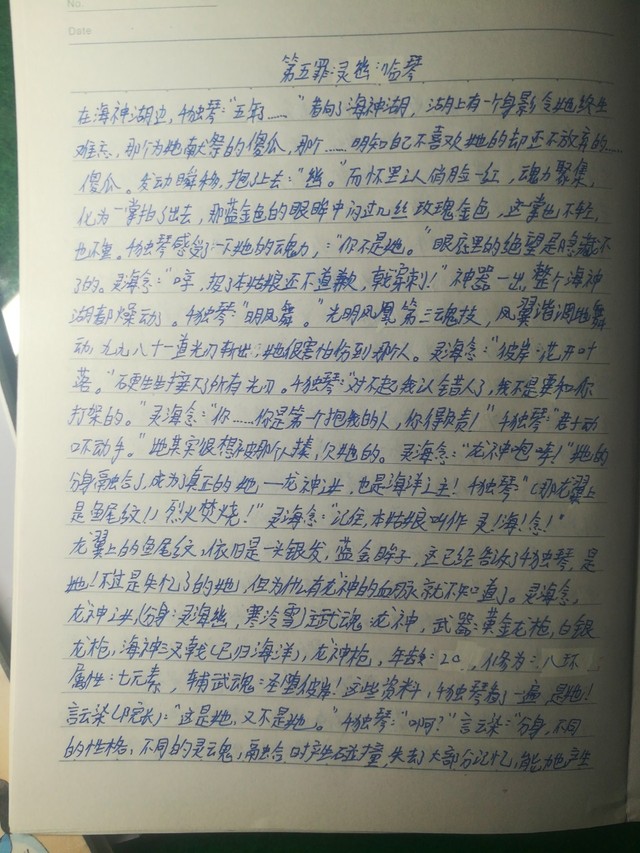 No.
Date
第五罪:灵幽:临琴
在海神湖边,千独琴:"五年了……"看向了海神湖,湖上有一个身影令她终生
难忘,那个为她献祭的傻瓜,那个……明知自己不喜欢她的却还不放弃的……
傻瓜。发动瞬移,抱了上去:"幽。"而怀里之人俏脸一红,魂力聚集,
化为一掌拍了出去,那蓝金色的眼眸中闪过几丝玫瑰金色,这掌也不轻,
也不重。千独琴感受了一下她的魂力,:"你不是她。"眼底里的绝望是隐藏不
了的。灵海念:"哼,抱了本姑娘还不道歉,戟穿刺!"神器一出,整个海神
湖都燥动了。千独琴:"明凤舞。"光明凤凰第三魂技,凤翼谐调地舞
动,九九八十一道光刃斩出,她很害怕伤到那个人。灵海念:"彼岸:花开叶
落。"硬生生接下了所有光刃。千独琴:"对不起,我认错人了,我不是要和你
打架的。"灵海念:"你……你是第一个抱我的人,你得负责!"千独琴:"君子动
口不动手。"她其实很想被那个人揍,欠她的。灵海念:"龙神咆哮!"她的
分身融合了,成为了真正的她—龙神之女,也是海洋之主!千独琴:"(那龙翼上
是鱼尾纹!)烈火焚烧!"灵海念:"记住,本姑娘叫作灵!海!念!"
龙翼上的鱼尾纹,依旧是一头银发,蓝金眸子,这已经告诉了千独琴,是
她!不过是失忆了的她,但为什么有龙神的血脉就不知道了。灵海念,
龙神之女(分身:灵海幽,寒冷雪)主武魂:龙神,武器:黄金龙枪,白银
龙枪,海神三叉戟(已归海洋),龙神枪,年龄:20,修为:八环
属性:七元素,辅武魂:圣堕彼岸!这些资料,千独琴看了一遍,是她!
言云染(院长):"这是她,又不是她。"千独琴:"啊?"言云染:"分身,不同
的性格、不同的灵魂,融合时产生碰撞,失去了大部分记忆,能为她产生